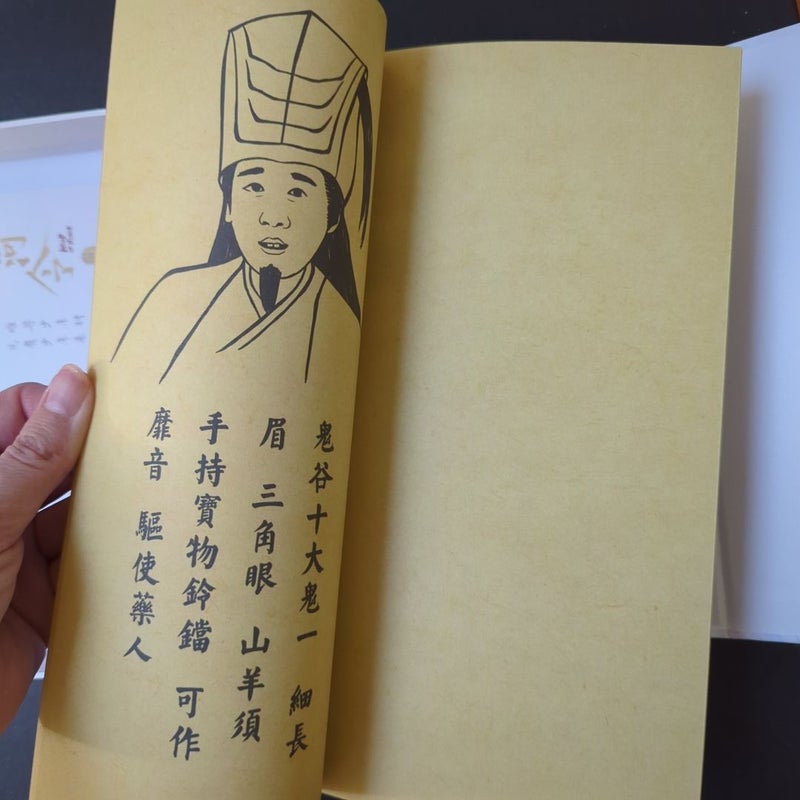 鬼谷十大鬼一 細長
眉 三角眼 山羊須
手持寶物鈴鐺 可作
靡音 驅使藥人
令